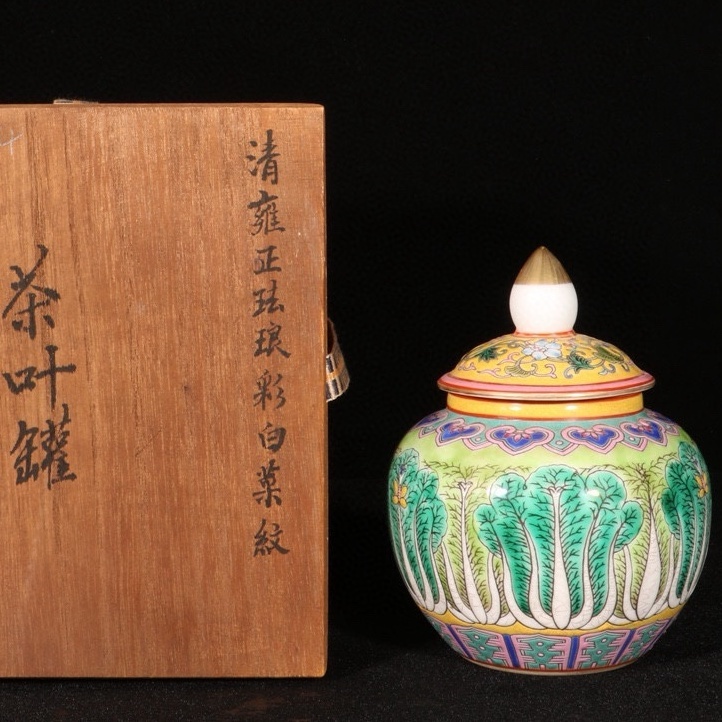 清雍正珐琅彩白菜紋
茶叶罐